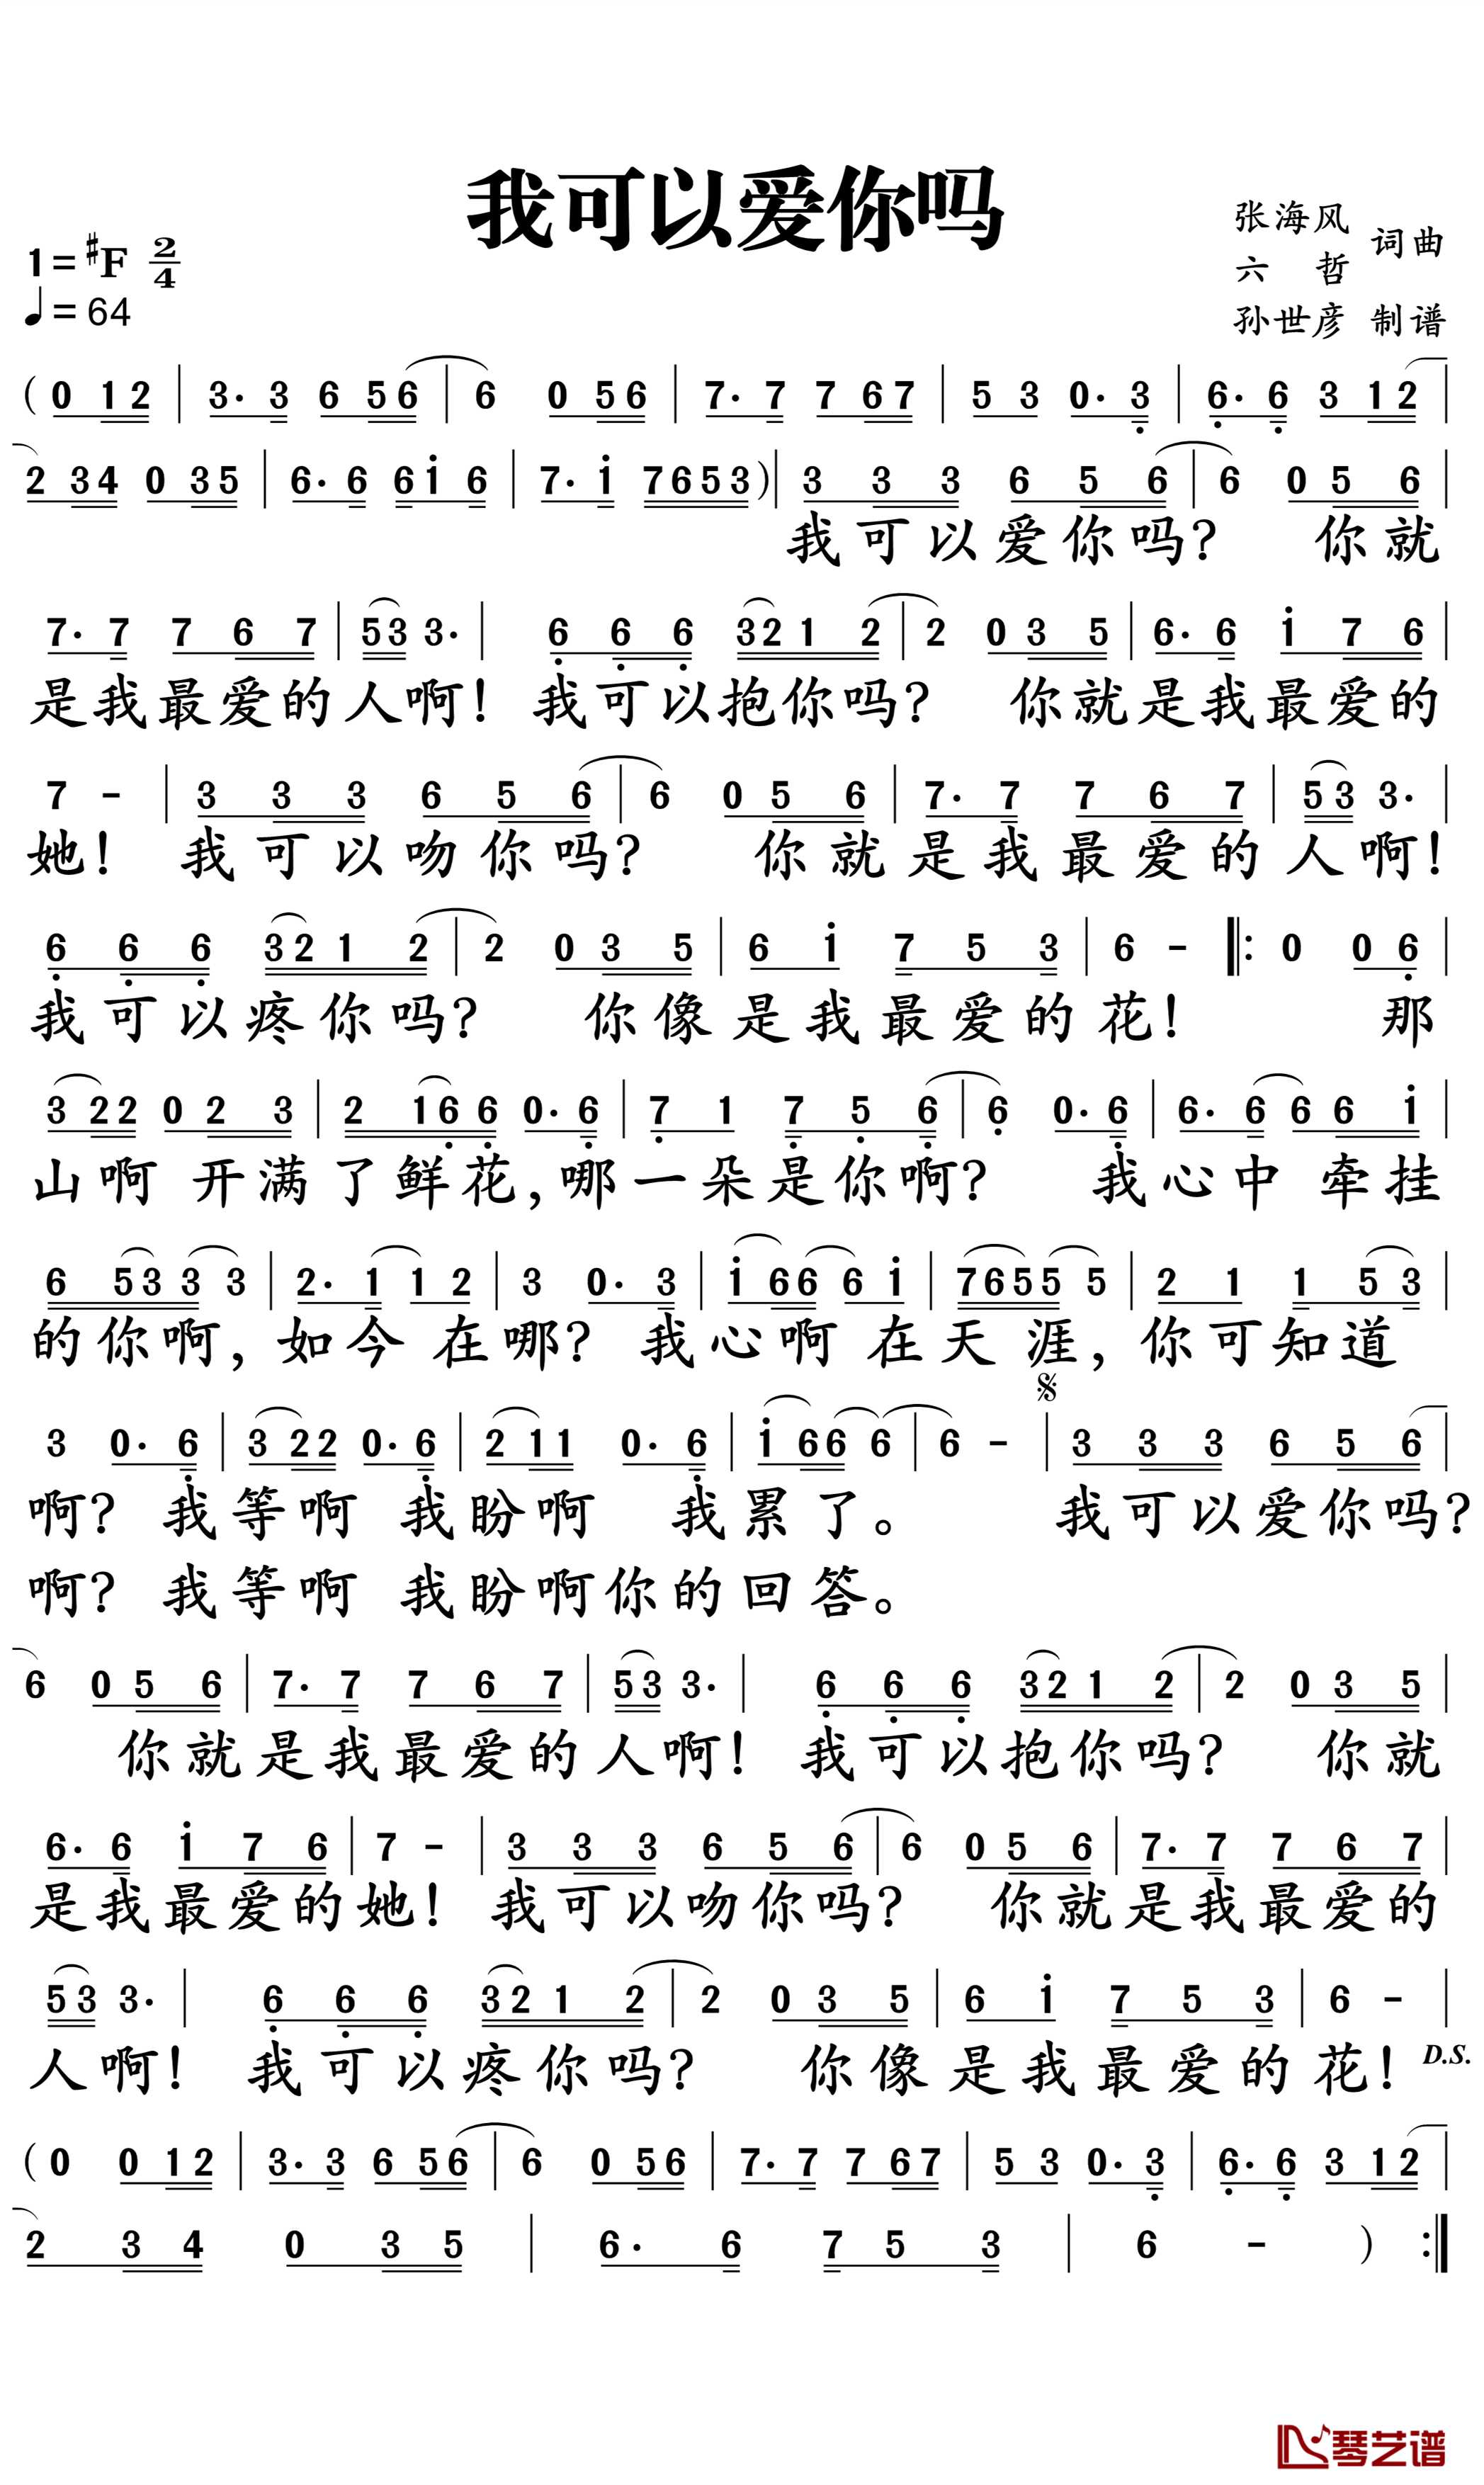 我可以爱你吗
张海风
六 哲 词曲
孙世彦 制谱
1=♯F 2/4
♩=64
( 0 12 | 3· 3 6 56 | 6 0 56 | 7· 7 7 67 | 5 3 0· 3 | 6· 6 3 12 |
2 34 0 35 | 6· 6 6i 6 | 7· i 7653 ) | 3 3 3 6 5 6 | 6 0 5 6 |
我可以爱你吗? 你就
7· 7 7 6 7 | 53 3· | 6 6 6 32 1 2 | 2 0 3 5 | 6· 6 i 7 6 |
是我最爱的人啊! 我可以抱你吗? 你就是我最爱的
7 - | 3 3 3 6 5 6 | 6 0 5 6 | 7· 7 7 6 7 | 53 3· |
她! 我可以吻你吗? 你就是我最爱的人啊!
6 6 6 32 1 2 | 2 0 3 5 | 6 i 7 5 3 | 6 - ‖: 0 0 6 |
我可以疼你吗? 你像是我最爱的花! 那
3 22 0 2 3 | 2 16 6 0· 6 | 7 1 7 5 6 | 6 0· 6 | 6· 6 6 6 i |
山啊 开满了鲜花,哪一朵是你啊? 我心中 牵挂
6 53 3 3 | 2· 1 1 2 | 3 0· 3 | i 66 6 i | 7655 5 | 2 1 1 5 3 |
的你啊,如今 在哪? 我心啊 在天 涯,你可知道
𝄋
3 0· 6 | 3 22 0· 6 | 2 11 0· 6 | i 66 6 | 6 - | 3 3 3 6 5 6 |
啊? 我等啊 我盼啊 我累了。 我可以爱你吗?
啊? 我等啊 我盼啊你的回答。
6 0 5 6 | 7· 7 7 6 7 | 53 3· | 6 6 6 32 1 2 | 2 0 3 5 |
你就是我最爱的人啊! 我可以抱你吗? 你就
6· 6 i 7 6 | 7 - | 3 3 3 6 5 6 | 6 0 5 6 | 7· 7 7 6 7 |
是我最爱的她! 我可以吻你吗? 你就是我最爱的
53 3· | 6 6 6 32 1 2 | 2 0 3 5 | 6 i 7 5 3 | 6 - |
人啊! 我可以疼你吗? 你像是我最爱的花! D.S.
( 0 0 12 | 3· 3 6 56 | 6 0 56 | 7· 7 7 67 | 5 3 0· 3 | 6· 6 3 12 |
2 3 4 0 3 5 | 6· 6 7 5 3 | 6 - ) :‖
琴艺谱